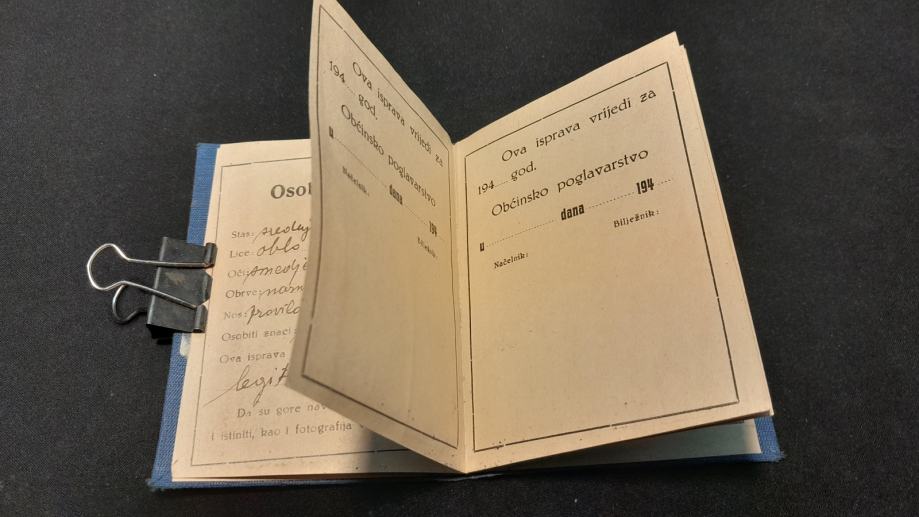 Stas:
Lice: oblo
Oči: smedje
Obrve:
Nos:
Osobiti znaci:
Ova isprava
Da su gore
i istiniti, kao i fotografija
Ova isprava vrijedi za
194 god.
Obćinsko poglavarstvo
u dana 194
Načelnik: Bilježnik:
Ova isprava vrijedi za
194 god.
Obćinsko poglavarstvo
u dana 194
Načelnik: Bilježnik: